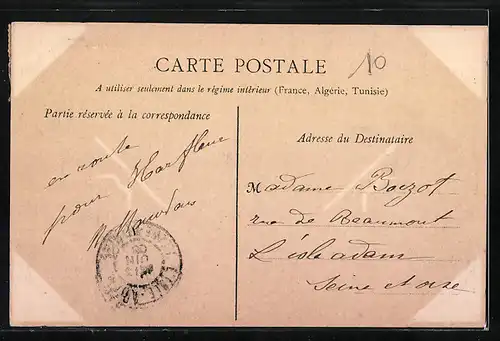 10
CARTE POSTALE
A utiliser seulement dans le régime intérieur (France, Algérie, Tunisie)
Partie réservée à la correspondance
Adresse du Destinataire
en route
pour Harfleur
Madame Bouzot
rue de Beaumont
L'isle adam
Seine et oise